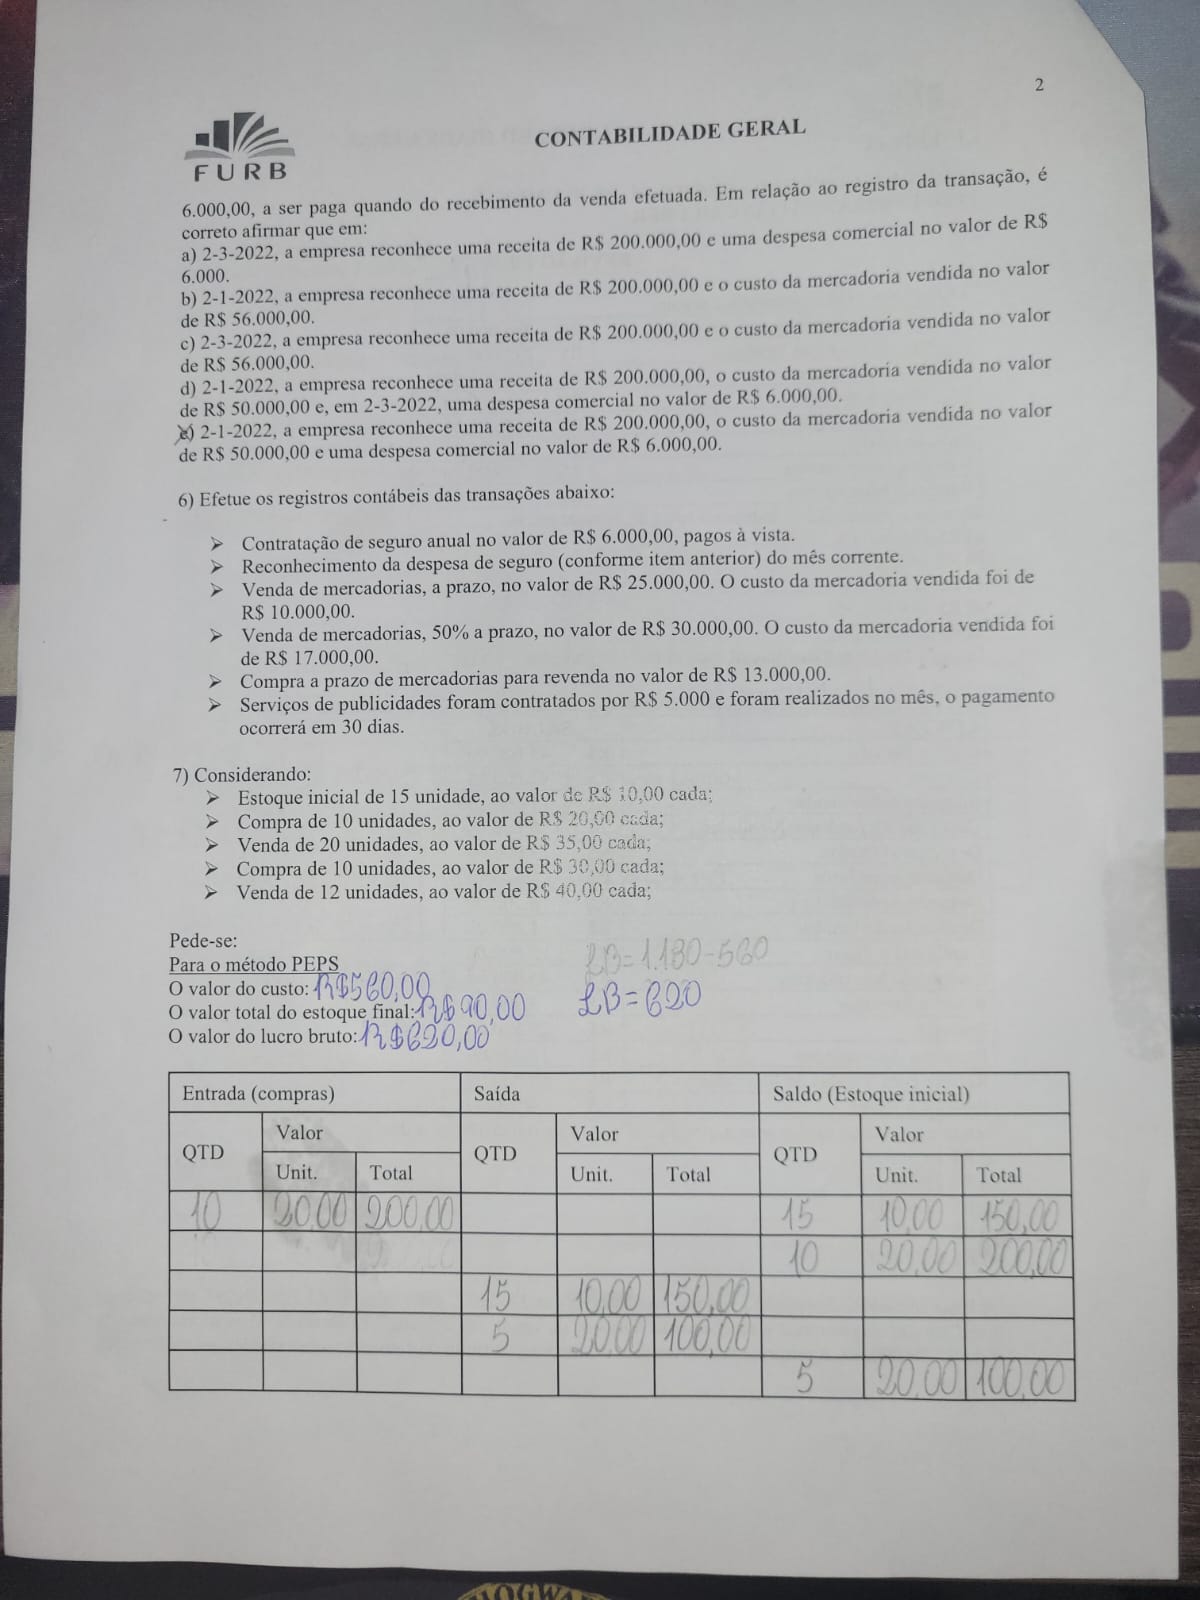 2
FURB
CONTABILIDADE GERAL
6.000,00, a ser paga quando do recebimento da venda efetuada. Em relação ao registro da transação, é
correto afirmar que em:
a) 2-3-2022, a empresa reconhece uma receita de R$ 200.000,00 e uma despesa comercial no valor de R$
6.000.
b) 2-1-2022, a empresa reconhece uma receita de R$ 200.000,00 e o custo da mercadoria vendida no valor
de R$ 56.000,00.
c) 2-3-2022, a empresa reconhece uma receita de R$ 200.000,00 e o custo da mercadoria vendida no valor
de R$ 56.000,00.
d) 2-1-2022, a empresa reconhece uma receita de R$ 200.000,00, o custo da mercadoria vendida no valor
de R$ 50.000,00 e, em 2-3-2022, uma despesa comercial no valor de R$ 6.000,00.
e) 2-1-2022, a empresa reconhece uma receita de R$ 200.000,00, o custo da mercadoria vendida no valor
de R$ 50.000,00 e uma despesa comercial no valor de R$ 6.000,00.
6) Efetue os registros contábeis das transações abaixo:
➢ Contratação de seguro anual no valor de R$ 6.000,00, pagos à vista.
➢ Reconhecimento da despesa de seguro (conforme item anterior) do mês corrente.
➢ Venda de mercadorias, a prazo, no valor de R$ 25.000,00. O custo da mercadoria vendida foi de
R$ 10.000,00.
➢ Venda de mercadorias, 50% a prazo, no valor de R$ 30.000,00. O custo da mercadoria vendida foi
de R$ 17.000,00.
➢ Compra a prazo de mercadorias para revenda no valor de R$ 13.000,00.
➢ Serviços de publicidades foram contratados por R$ 5.000 e foram realizados no mês, o pagamento
ocorrerá em 30 dias.
7) Considerando:
➢ Estoque inicial de 15 unidade, ao valor de R$ 10,00 cada;
➢ Compra de 10 unidades, ao valor de R$ 20,00 cada;
➢ Venda de 20 unidades, ao valor de R$ 35,00 cada;
➢ Compra de 10 unidades, ao valor de R$ 30,00 cada;
➢ Venda de 12 unidades, ao valor de R$ 40,00 cada;
Pede-se:
Para o método PEPS
O valor do custo: R$560,00
O valor total do estoque final: R$90,00
O valor do lucro bruto: R$620,00
LB=1.180-560
LB=620
Entrada (compras) Saída Saldo (Estoque inicial)
QTD Valor QTD Valor QTD Valor
Unit. Total Unit. Total Unit. Total
10 20,00 200,00 15 10,00 150,00
10 20,00 200,00
15 10,00 150,00
5 20,00 100,00
5 20,00 100,00